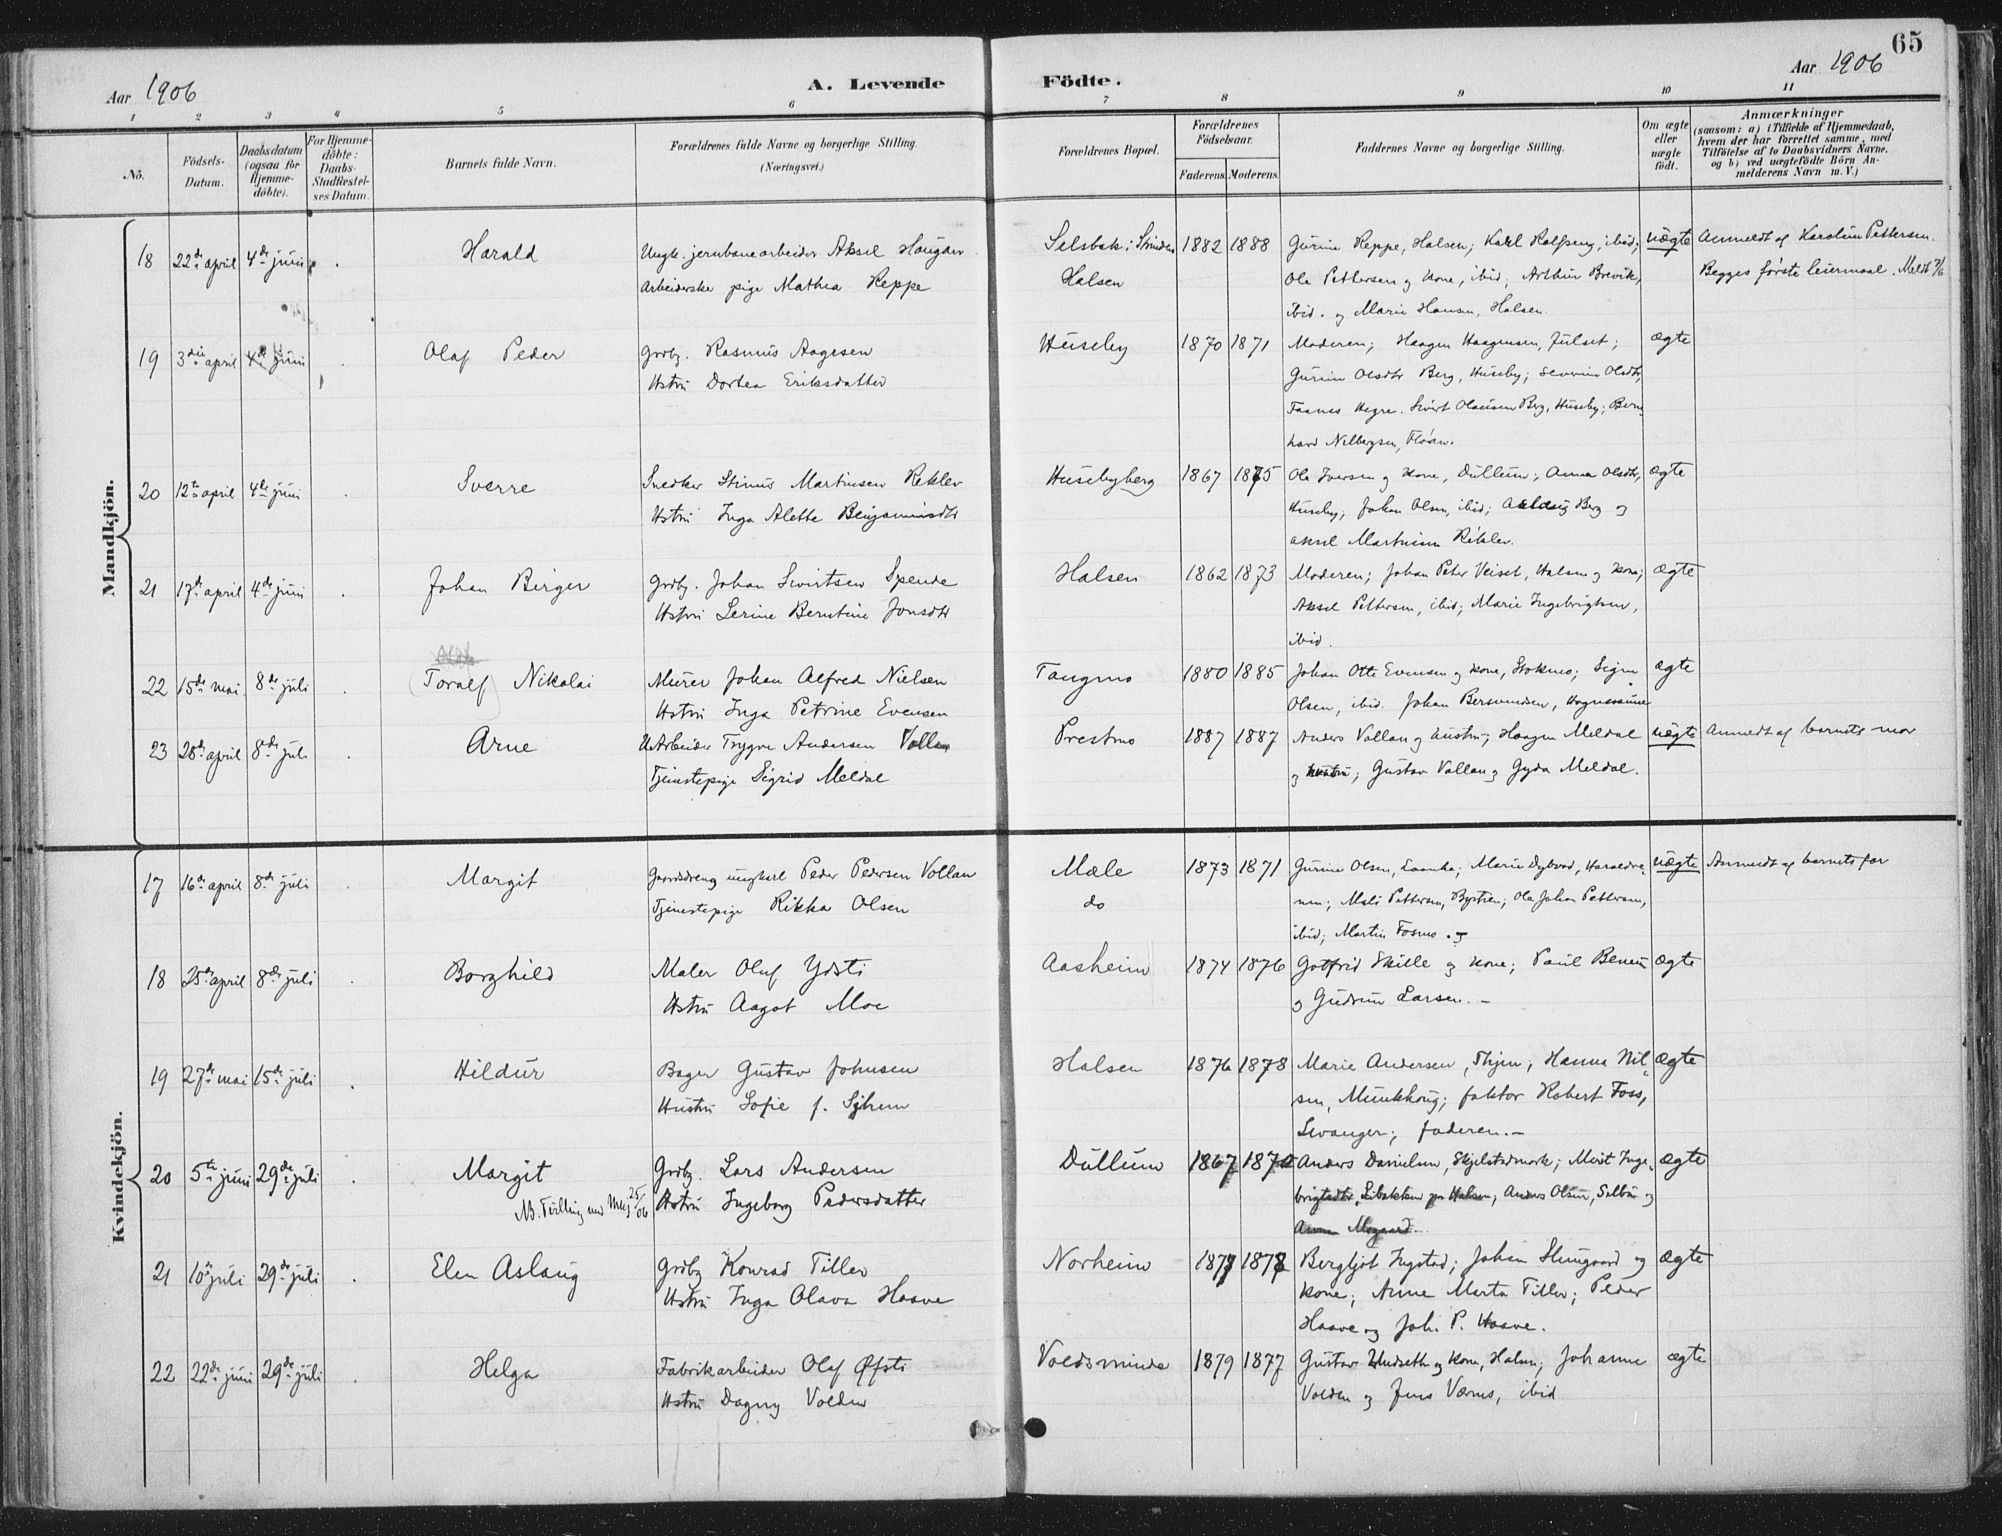 65
Aar 1906
A. Levende
Födte.
Aar 1906
1 2 3 4 5 6 7 8 9 10 11
No.
Födsels-Datum.
Daabsdatum (ogsaa for Hjemme-döbte).
For Hjemme-döbte: Daabs-Stadfæstel-ses Datum.
Barnets fulde Navn.
Forældrenes fulde Navne og borgerlige Stilling. (Næringsvei.)
Forældrenes Bopæl.
Forældrenes Födselsaar.
Faderens. Moderens.
Faddernes Navne og borgerlige Stilling.
Om ægte eller uægte födt.
Anmærkninger
(saasom: a) i Tilfælde af Hjemmedaab, hvem der har forrettet samme, med Tilföielse af to Daabsvidners Navne, og b) ved uægtefödte Börn An-melderens Navn m. V.)
Mandkjön.
18 22de april 4de juni Harald Ungk. jernbanearbeider Aksel Haugan Selsbak i Strinden 1882 1888 Gurine Reppe, Halsen; Karl Ralfseng, ibid; uægte Anmeldt af Karoline Pettersen.
Arbeiderske pige Mathea Reppe Halsen Ole Pettersen og kone, ibid; Arthur Brevik, Begges første leiermaal. Meldt 7/6
ibid. og Marie Hansen, Halsen.
19 3die april 4de juni Olaf Peder Grdbr. Rasmus Aagesen Huseby 1870 1871 Moderen; Haagen Haagensen, Julset; ægte
Hstru Dortea Eriksdatter Gurine Olsdtr Berg, Huseby; Olsdtr,
Hegre. Sivert Olausen Berg, Huseby; Bern
hard
20 12te april 4de juni Sverre Snedker Martinsen Rekler Husebyberg 1867 1875 Ole Iversen og kone, Dullum; Anna Olsdtr, ægte
Hstru Inga Alette Benjaminsdtr Huseby; Johan Olsen, ibid; Berg og
Aksel Martinsen
21 17de april 4de juni Johan Birger Grdbr. Johan Sivertsen Spende Halsen 1862 1873 Moderen; Johan Peter Veiset, Halsen og kone; ægte
Hstru Serine Berntine Jonsdtr Aksel Pettersen, ibid; Marie Ingebrigtsen,
ibid.
22 15de mai 8de juli (Toralf) Nikolai Murer Johan Alfred Nielsen Tangmo 1880 1885 Johan Otto Evensen og kone, Stokmo; Signe ægte
Hstru Inga Petrine Evensen Olsen, ibid. Johan
23 28de april 8de juli Arne U Arbeider Trygve Andersen Vollan Prestmo 1887 1887 Anders Vollan og hustru; Haagen Meldal uægte Anmeldt af barnets mor
Tjenestepige Sigrid Meldal og hustru; Gustav Vollan og Gyda Meldal.
Kvindekjön.
17 16de april 8de juli Margit Gaardsdreng ungkarl Peder Pedersen Vollan Mæle 1873 1871 Gurine Olsen, Laanke; Marie Dybvad, uægte Anmeldt af barnets far
Tjenestepige Rikka Olsen do Pettersen, Ole Johan Pettersen,
ibid; Martin Fosmo.
18 25de april 8de juli Borghild Maler Oluf Ydsti Aasheim 1874 1876 Gotfrid Skille og kone; Paul ægte
Hstru Aagot Moe og Gudrun Larsen.
19 27de mai 15de juli Hildur Bager Gustav Johnsen Halsen 1876 1878 Marie Andersen, Hanna Nil- ægte
Hustru Sofie f. sen, Munkhaug; faktor Robert Foss,
Levanger; faderen.
20 5te juni 29de juli Margit Grdbr. Lars Andersen Dullum 1867 1870 Anders Danielsen, Skjelstadmark; Inge- ægte
NB. Tvilling 25/06 Hstru Ingeborg Pedersdatter brigtsdtr, Halsen, Anders Olsen, Selbu og
Anna
21 10de juli 29de juli Elen Aslaug Grdbr Konrad Tiller Norheim 1877 1878 Bergljot Ingstad; Johan og ægte
Hstru Inga Olava Haave kone; Anne Marta Tiller; Peder
Haave og Joh. P. Haave.
22 22de juni 29de juli Helga Fabrikarbeider Olaf Øfsti Voldsminde 1879 1877 Gustav og kone, Halsen; Johanne ægte
Hstru Dagny Volden Volden og Jens Værnes, ibid